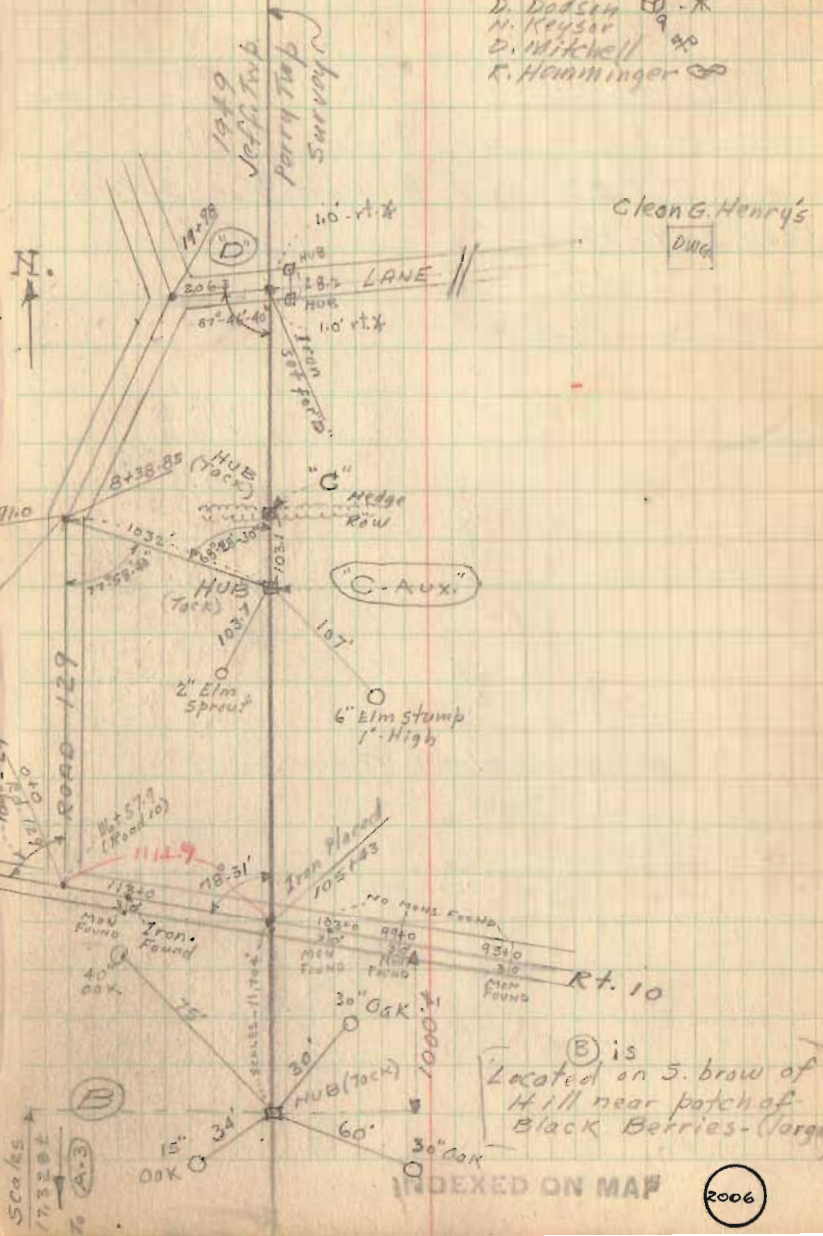 D. Dodson
N. Keyser
D. Mitchell
R. Hamminger
1949
Jeff. Twp.
Perry Twp
Survey
Cleon G. Henry's
DWG
N.
19+98
"D"
1.0' rt.
HUB
206.3
28.2
LANE
HUB
87°-46'-40"
1.0' rt.
Iron
Set for "D"
8+38.85
HUB
(Tack)
"C"
Hedge
Row
91.0
1032'
68°-28'-30"
103.1
77°-58'-40"
HUB
(Tack)
"C-Aux."
103.7
107'
2" Elm
Sprout
6" Elm Stump
1'-High
ROAD 129
0+0
Rd. 129
116+57.9
(Road 10)
1114.9
78°-31'
Iron Placed
105+43
113+0
3.0
MON
FOUND
Iron
Found
NO MONS FOUND
103+0
3.0
MON
FOUND
99+0
3.0
MON
FOUND
95+0
3.0
MON
FOUND
Rt. 10
40"
OAK
75'
Scales-11,704'
30" OAK
30'
1000'±
HUB (TACK)
B
34'
60'
15"
OAK
30" OAK
(B) is
Located on S. brow of
Hill near patch of
Black Berries-(large)
Scales
17,328±
To A-3
INDEXED ON MAP
2006